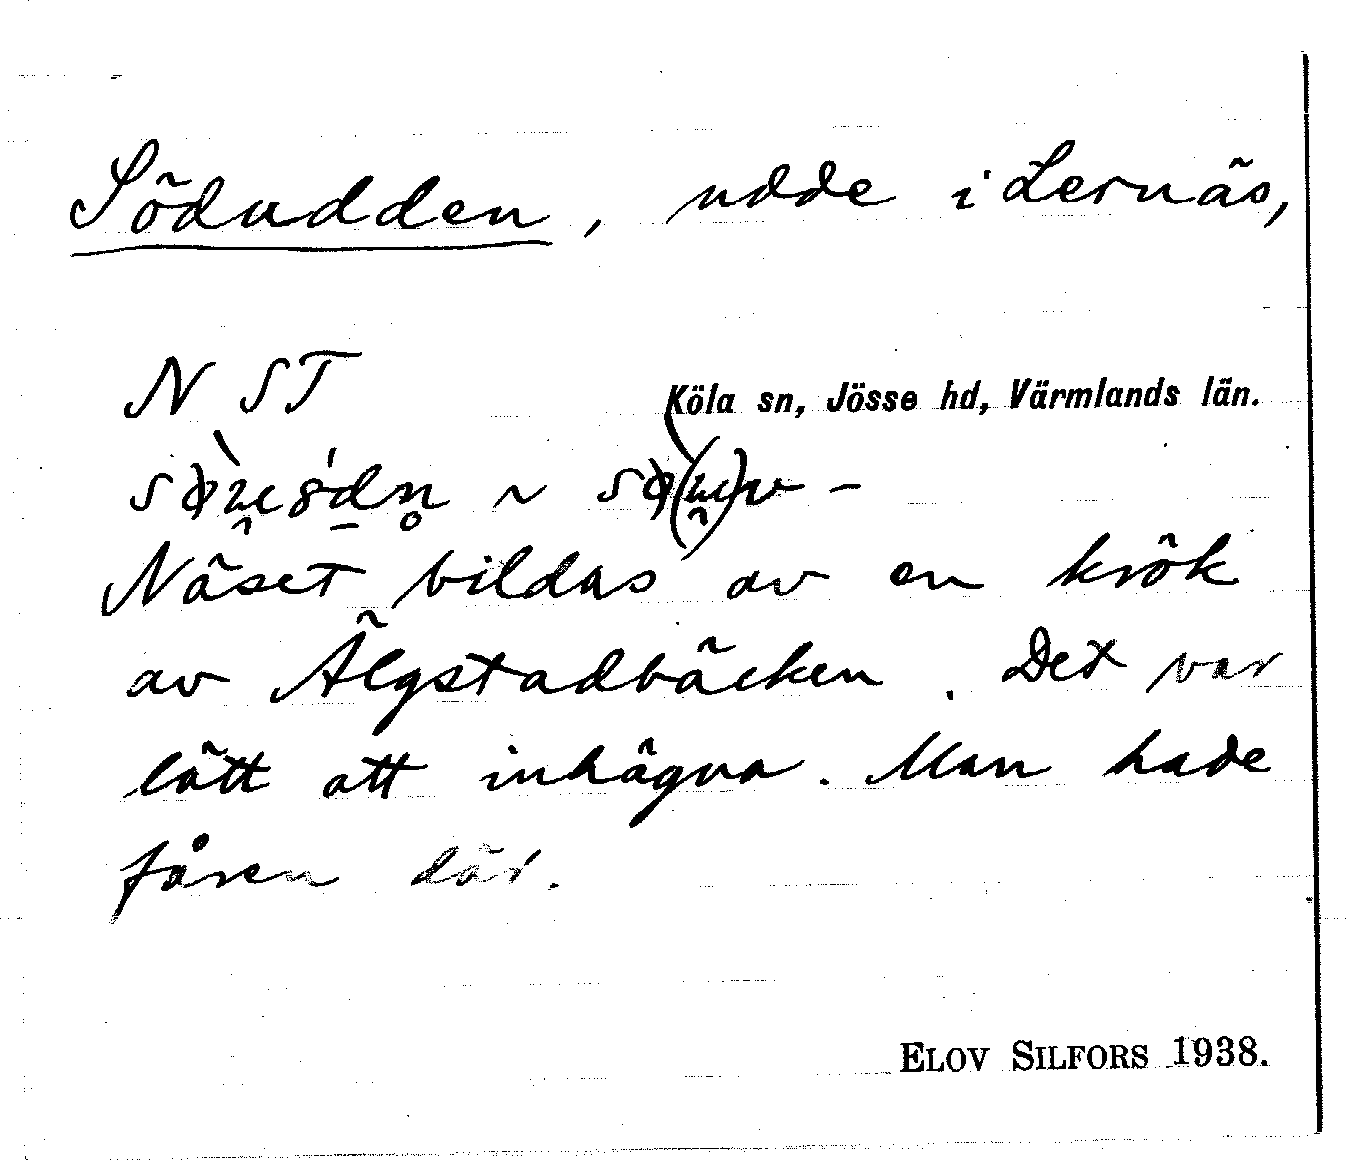 Södudden, udde i Lernäs,
N ST
Köla sn, Jösse hd, Värmlands län.
Näset bildas av en krök
av Älgstadbäcken. Det var
lätt att inhägna. Man hade
fåren där.
ELOV SILFORS 1938.